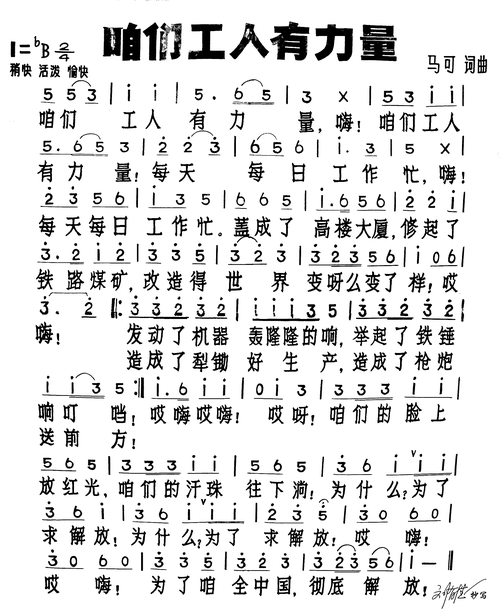 咱们工人有力量
1=♭B 2/4
稍快 活泼 愉快
马可 词曲
5 5 3 | i i | 5. 6 5 | 3 x | 5 5 3 i i |
咱们 工人 有 力 量,嗨!咱们工人
5. 6 5 3 | 2 2 3 | 2 3 5 6 | i. 3 | 5 x |
有 力 量!每天 每 日 工 作 忙,嗨!
2 3 5 6 | i 3 5 | 6 5 6 5 | i. 6 5 6 | 2 2 i |
每天每日 工作忙。盖成了 高楼大厦,修起了
3. 2 i 2 | 3 3 3 | 2 3 2 3 5 6 | i 0 6 |
铁 路 煤 矿,改造得 世 界 变呀么变了样!哎
3. 2 ‖: 3 3 2 3 2 | i i i 3 5 | 3 3 2 3 2 |
嗨! 发动了机器 轰隆隆的响,举起了铁锤
造成了犁锄 好 生 产,造成了枪炮
i i 3 5 :‖ i. 6 i i | 0 i 3 | 3 3 3 i i |
响叮 当! 哎嗨哎嗨! 哎呀!咱们的脸上
送前 方!
5 6 5 | 3 3 3 i i | 5 6 5 | 3 6 i i i |
放红光,咱们的汗珠 往下淌!为什么?为了
3 6 3 | 0 6 i i i | 2 3 5 | 3 0 6 0 |
求解放!为什么?为了 求解放!哎 嗨!
3 0 6 0 | 5 5 6 | i 2 3 | 3 2 3 5 6 | i — ‖
哎 嗨! 为了 咱 全中国,彻底 解 放!
抄写